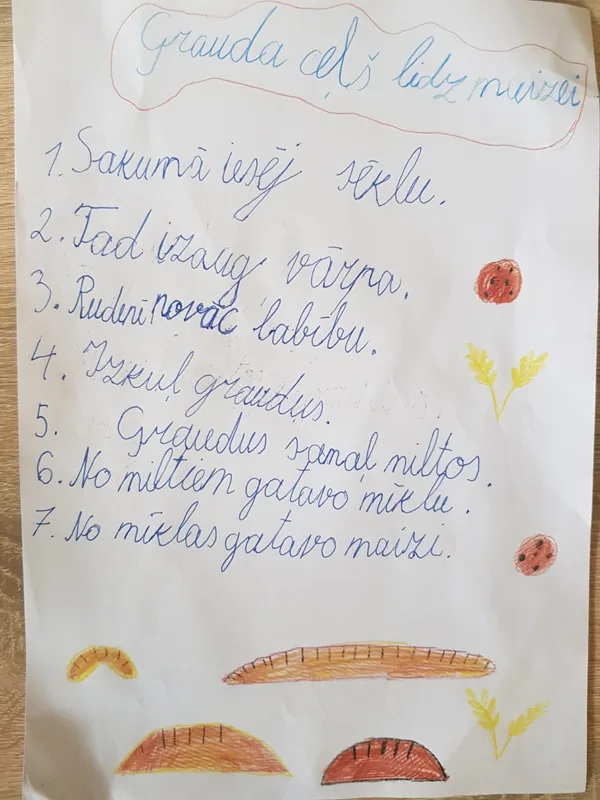 Grauda ceļš lidz maizei
1. Sakumā iesēj sēklu.
2. Tad izaug vārpa.
3. Rudenī novāc labību.
4. Izkuļ graudus.
5. Graudus samaļ miltos.
6. No miltiem gatavo mīklu.
7. No mīklas gatavo maizi.